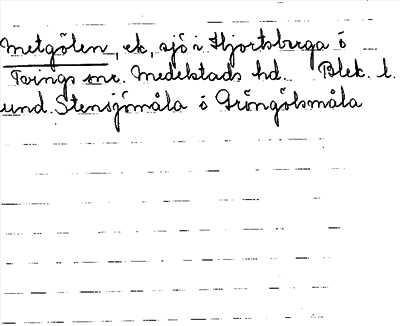 Metgölen, ek, sjö i Hjortsberga ö
Tvings snr. Medelstads hd. Blek. l.
und. Stensjömåla ö Gröngölsmåla